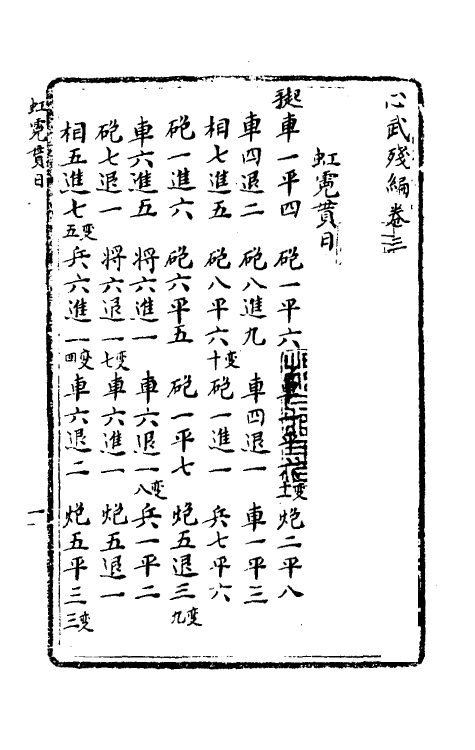 心武殘編卷三
虹霓貫日
車一平四 砲一平六 車一平六变土 炮二平八
車四退二 砲八進九 車四退一 車一平三
相七進五 砲八平六变十 砲一進一 兵七平六
砲一進六 砲六平五 砲一平七 炮五退三变九
車六進五 将六進一 車六退一变八 兵一平二
砲七退一 将六退一变七 車六進一 炮五退一
相五進七变五 兵六進一变四 車六退二 炮五平三变三
虹霓貫日
一